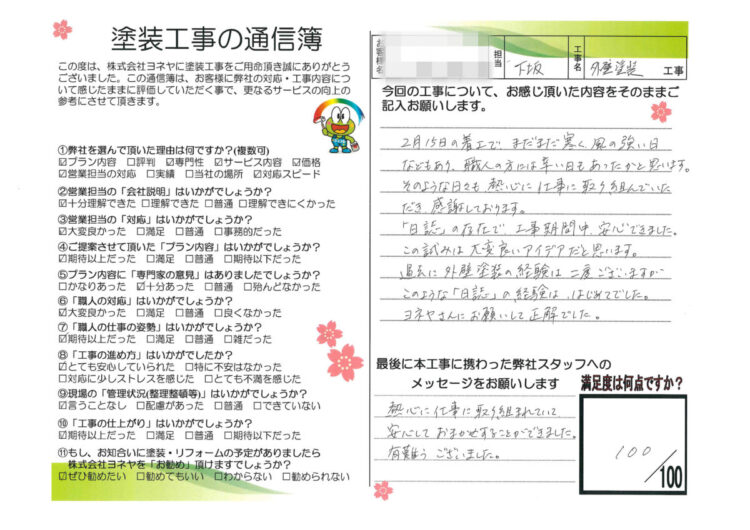 塗装工事の通信簿
この度は、株式会社ヨネヤに塗装工事をご用命頂き誠にありがとう
ございました。この通信簿は、お客様に弊社の対応・工事内容につ
いて感じたままに評価していただく事で、更なるサービスの向上の
参考にさせて頂きます。
①弊社を選んで頂いた理由は何ですか?(複数可)
☑プラン内容 □評判 ☑専門性 ☑サービス内容 ☑価格
☑営業担当の対応 □実績 □当社の場所 ☑対応スピード
②営業担当の「会社説明」はいかがでしょうか?
☑十分理解できた □理解できた □普通 □理解できにくかった
③営業担当の「対応」はいかがでしょうか?
☑大変良かった □満足 □普通 □事務的だった
④ご提案させて頂いた「プラン内容」はいかがでしょうか?
☑期待以上だった □満足 □普通 □期待以下だった
⑤プラン内容に「専門家の意見」はありましたでしょうか?
□かなりあった ☑十分あった □普通 □殆んどなかった
⑥「職人の対応」はいかがでしょうか?
☑大変良かった □満足 □普通 □良くなかった
⑦「職人の仕事の姿勢」はいかがでしょうか?
☑期待以上だった □満足 □普通 □雑だった
⑧「工事の進め方」はいかがでしたか?
☑とても安心していられた □特に不安はなかった
□対応に少しストレスを感じた □とても不満を感じた
⑨現場の「管理状況(整理整頓等)」はいかがでしょうか?
☑言うことなし □配慮があった □普通 □できていない
⑩「工事の仕上がり」はいかがでしょうか?
☑期待以上だった □満足 □普通 □期待以下だった
⑪もし、お知合いに塗装・リフォームの予定がありましたら
株式会社ヨネヤを「お勧め」頂けますでしょうか?
☑ぜひ勧めたい □勧めてもいい □わからない □勧められない
お客様名
担当 下坂
工事名 外壁塗装 工事
今回の工事について、お感じ頂いた内容をそのままご
記入お願いします。
2月15日の着工で、まだまだ寒く、風の強い日
などもあり、職人の方には辛い日もあったかと思います。
そのような日々も熱心に仕事に取り組んでいた
だき感謝しております。
「日誌」の存在で、工事期間中、安心できました。
この試みは大変良いアイデアだと思います。
過去に外壁塗装の経験は二度ございますが
このような「日誌」の経験は、はじめてでした。
ヨネヤさんにお願いして正解でした。
最後に本工事に携わった弊社スタッフへの
メッセージをお願いします
熱心に仕事に取り組まれていて
安心しておまかせすることができました。
有難うございました。
満足度は何点ですか?
100
/100